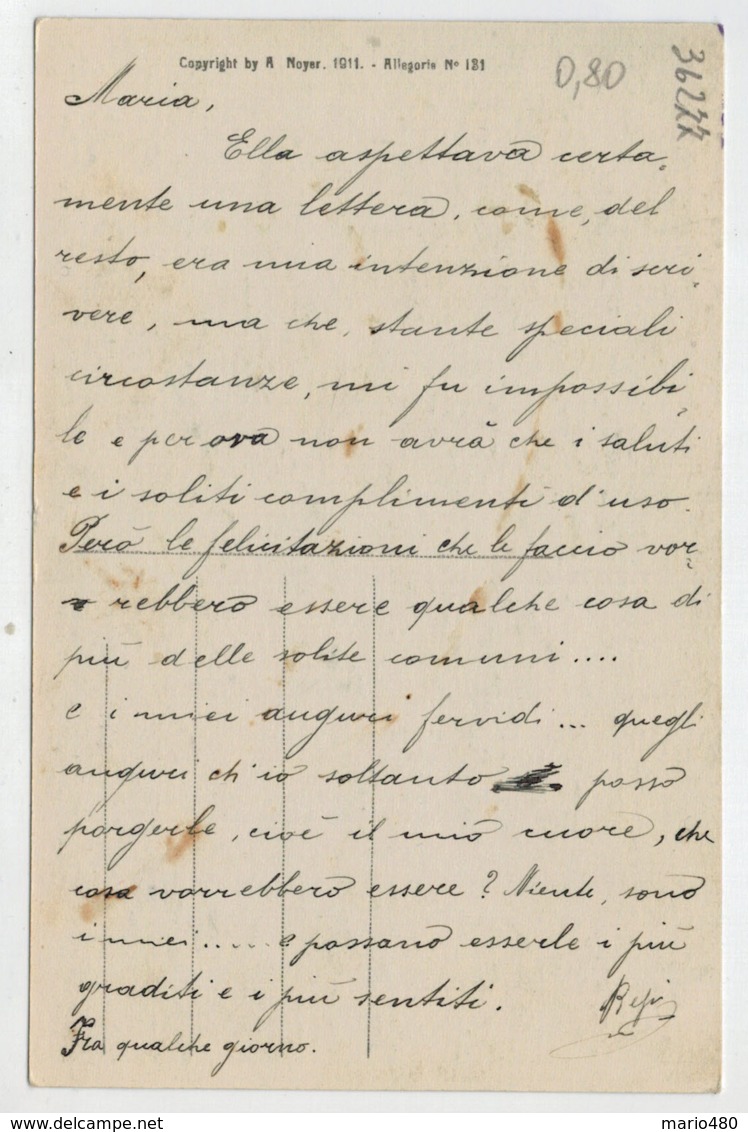 Copyright by A Noyer. 1911. - Allegorie No 131
0,80
36277
Maria,
Ella aspettava certa-
mente una lettera, come, del
resto, era mia intenzione di scri-
vere, ma che, stante speciali
circostanze, mi fu impossibi-
le e per ora non avrà che i saluti
e i soliti complimenti d'uso.
Però le felicitazioni che le faccio vor-
rebbero essere qualche cosa di
più delle solite comuni....
e i miei auguri fervidi... quegli
auguri ch'io soltanto posso
porgerle, cioè il mio cuore, che
cosa vorrebbero essere? Niente, sono
i miei..... e possano esserle i più
graditi e i più sentiti.
Fra qualche giorno.
mario480